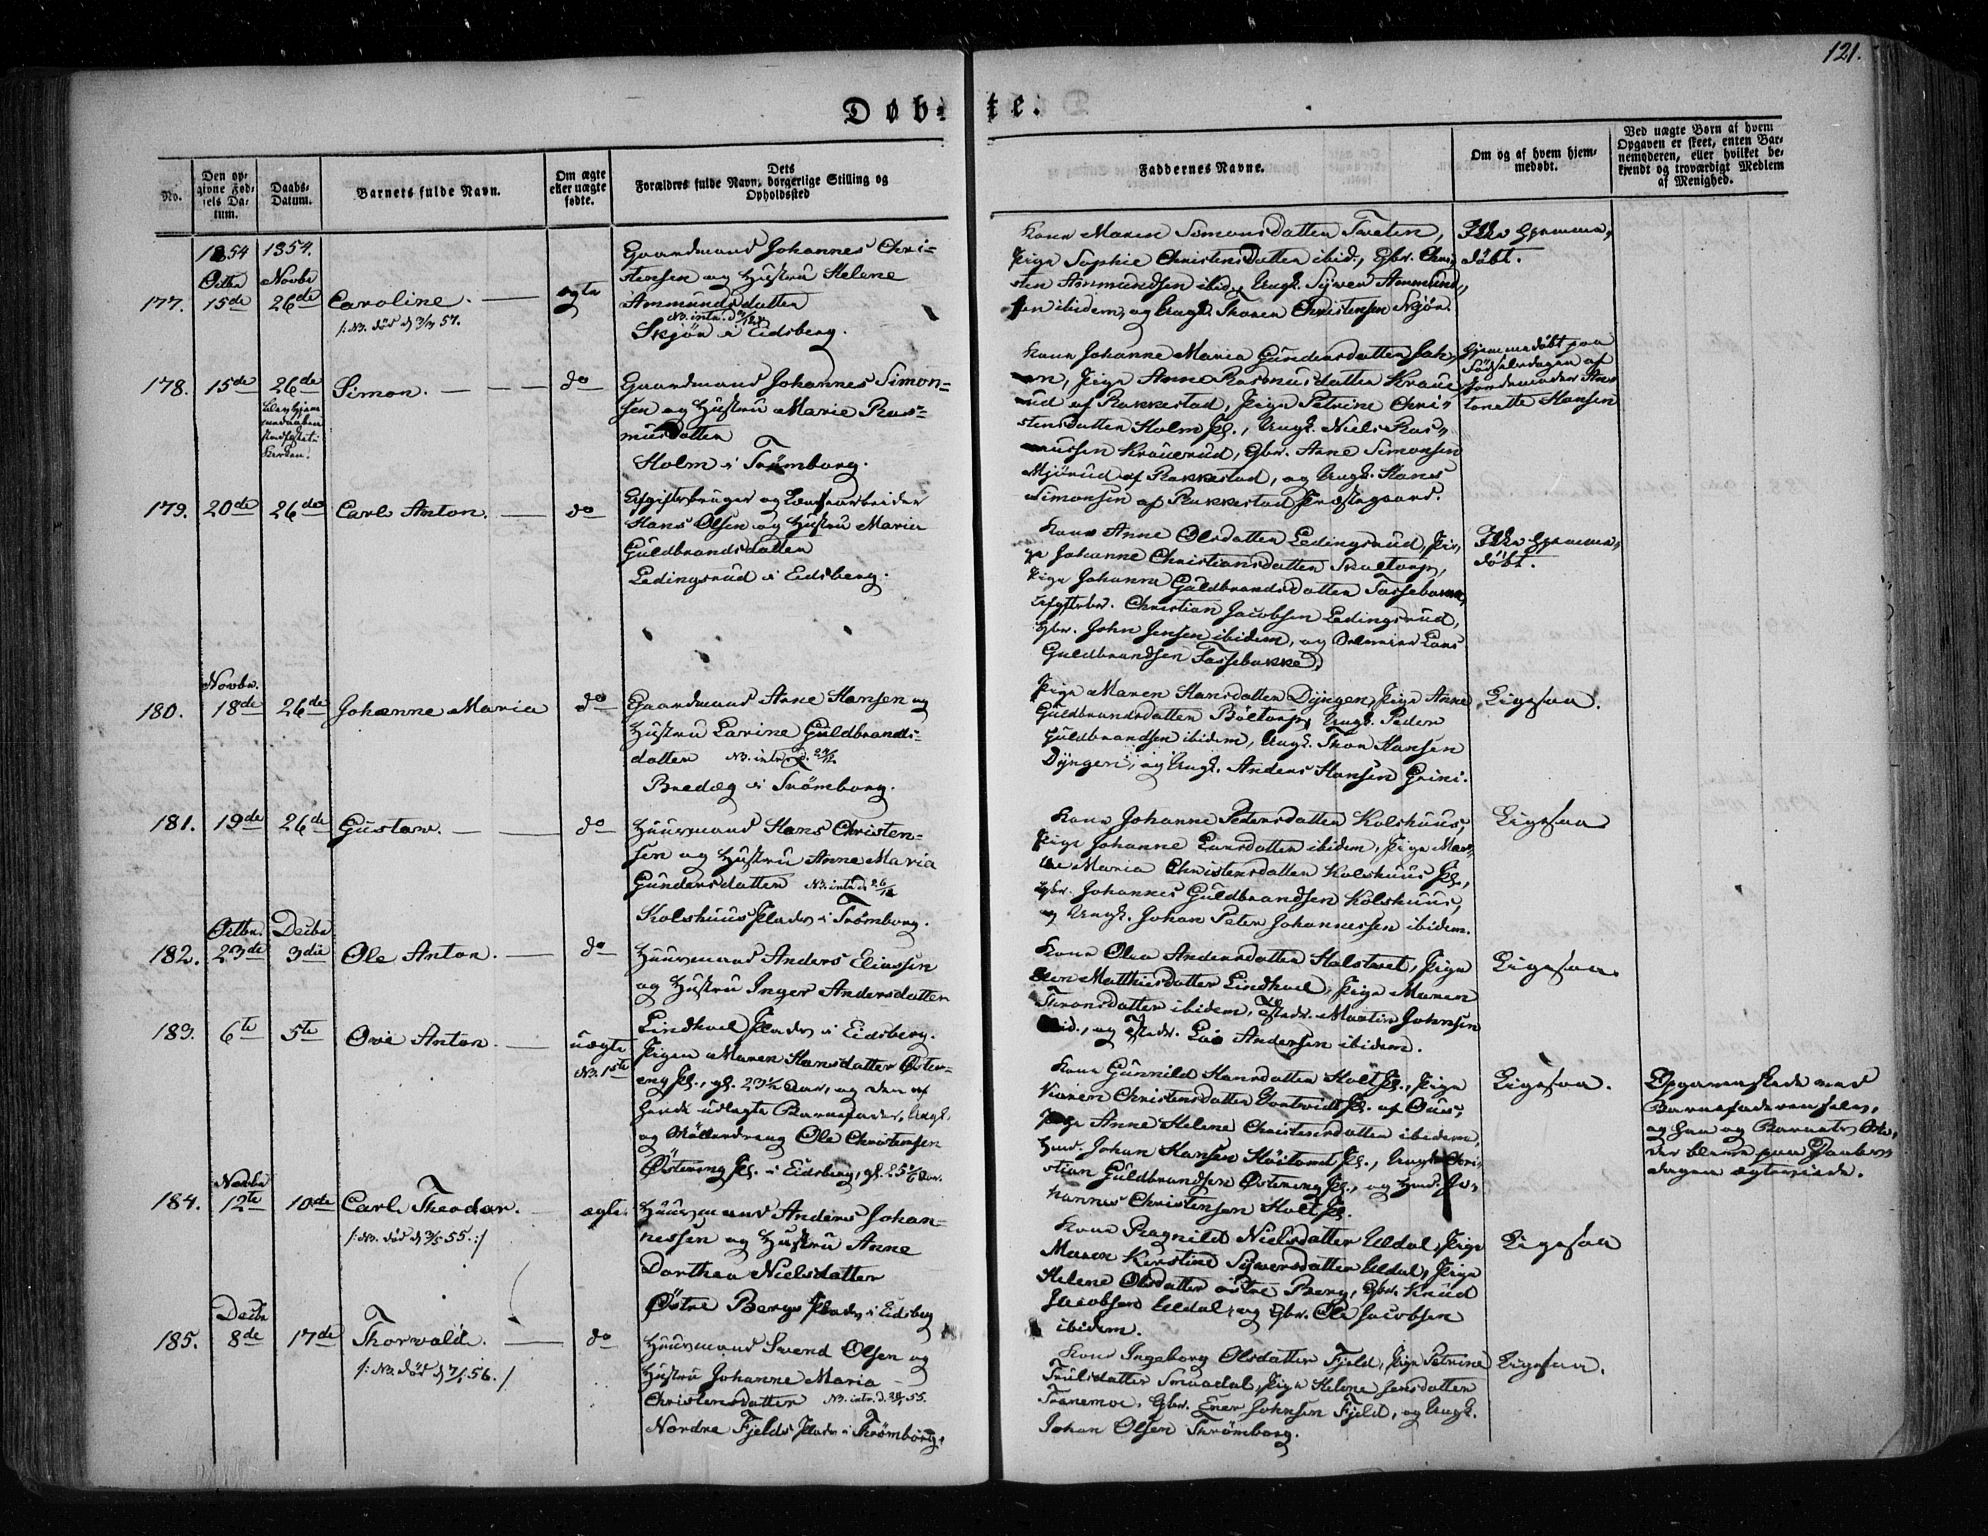 121.
Døb-
te.
No.
Den op-
givne Fød-
sels Da-
tum.
Daabs-
Datum.
Barnets fulde Navn.
Om ægte
eller uægte
fødte.
Dets
Forældres fulde Navn, borgerlige Stilling og
Opholdssted
Faddernes Navne.
Om og af hvem hjem-
medøbt.
Ved uægte Børn af hvem
Opgaven er skeet, enten Bar-
nemoderen, eller hvilket be-
kjendt og troværdigt Medlem
af Menighed.
1854
1854.
Octbr
Novbr
177.
15de
26de
Caroline.
/: NB. død d
57.
ægte
Gaardmand Johannes Chri-
stensen og Hustru Helene
Ammundsdatter
NB. intr. d
Skjør i Eidsberg.
Kone Maren Simensdatter Tveten,
Pige Sophie Christensdatter ibid., Gbr. Chri-
sten Ammundsen ibid., Ungk. Syver Ammund-
sen ibidem, og Ungk. Thoren Christensen Skjør.
Ikke hjemme-
døbt.
178.
15de
26de
Simon.
do
Gaardmand Johannes Simon-
sen og Hustru Marie Ras-
musdatter
Holm i Trømborg.
Kone Johanne Maria Gundersdatter
Pige Anne Rasmusdatter Krause-
rud af Rakkestad, Pige Petrine Chri-
stensdatter Holm Pl., Ungk. Niels Ras-
mussen Krauerud, Gbr. Arne Simonsen
Mjørud af Rakkestad, og Ungk. Hans
Simonsen af Rakkestad Præstegaard.
Hjemmedøbt paa
Fødselsdagen af
Jordemoder An-
tonette Hansen
179.
20de
26de
Carl Anton.
do
Afgiftsbruger og Løusarbeider
Hans Olsen og Hustru Maria
Guldbrandsdatter
Ledingsrud i Eidsberg.
Kone Anne Olsdatter Ledingsrud, Pi-
ge Johanne Christiansdatter
Pige Johanne Guldbrandsdatter Fossebakke,
Afgiftsbr. Christian Jacobsen Ledingsrud,
Gbr. John Jensen ibidem, og Lars
Guldbrandsen Fossebakke.
Ikke hjemme-
døbt.
Novbr.
180.
18de
26de
Johanne Maria
do
Gaardmand Arne Hansen og
Hustru Larine Guldbrands-
datter NB. intr. d.
Bredæg i Trømborg.
Pige Maren Hansdatter Dyngen, Pige Anne
Guldbrandsdatter Bøltorp, Ungk. Peder
Guldbrandsen ibidem, Ungk. Thor Hansen
Dyngen, og Ungk. Anders Hansen Grini.
Ligesaa.
181.
19de
26de
Gustav.
do
Huusmand Hans Christen-
sen og Hustru Anne Maria
Gundersdatter NB. intr. d. 26/12
Kolshuus Pladds i Trømborg.
Kone Johanne Pedersdatter Kolshuus,
Pige Johanne Larsdatter ibidem, Pige Mar-
the Maria Christensdatter Kolshuus Pl.,
Gbr. Johannes Guldbrandsen Kolshuus,
og Ungk. Johan Peter Johannessen ibidem.
Ligesaa
Octbr.
Decbr
182.
23de
3die
Ole Anton.
do
Huusmand Anders Eliassen
og Hustru Inger Andersdatter
Lindhoel Plads i Eidsberg.
Kone Olea Andersdatter Holstvet, Pige
Matthiesdatter Lindhoel, Pige Maren
Thronsdatter ibidem, Martin Johnsen
ibid., og Andersen ibidem.
Ligesaa.
183.
6te
5te
Ove Anton.
uægte
NB. 1ste
Pigen Maren Hansdatter Øster-
eng Pl., gl. 23½ Aar, og den af
hende udlagte Barnefader, Ungk.
og Møllerdreng Ole Christensen
Østereng Pl. i Eidsberg, gl. 25 Aar.
Kone Gunnild Hansdatter Holt Pl., Pige
Maren Christensdatter Pl. af
Pige Anne Helene Christensdatter ibidem,
Hmd. Johan Hansen Pl., Ungk. Chri-
stian Guldbrandsen Østereng Pl., og Hmd. Jo-
hannes Christensen Holt Pl.
Ligesaa.
Opgaven skede ved
Barnefaderen selv,
og han og Barnets Mo-
der bleve paa Daabs-
dagen ægteviede.
Novbr
184.
12te
10de
Carl Theodor.
/: NB. død d 55. :/
ægte.
Huusmand Anders Johan-
nessen og Hustru Anne
Dorthea Nielsdatter
Østre Bergs Plads i Eidsberg
Kone Ragnild Nielsdatter Udal, Pige
Maren Kirstine Syversdatter Udal, Pige
Helene Olsdatter østre Berg, Gbr. Knud
Jacobsen Udal, og Gbr. Ole Jacobsen
ibidem.
Ligesaa
Decbr
185.
8de
17de
Thorvald.
/: NB. død d 56. :/
do
Huusmand Svend Olsen og
Hustru Johanne Maria
Christensdatter NB. intr. d. 55.
Nordre Fjelds Plads i Thrømborg.
Kone Ingeborg Olsdatter Fjeld, Pige Petrine
Trulsdatter Smaadal, Pige Helene Jensdatter
Tranemoe, Gbr. Ener Johnsen Fjeld, og Ungk.
Johan Olsen Thrømborg.
Ligesaa.